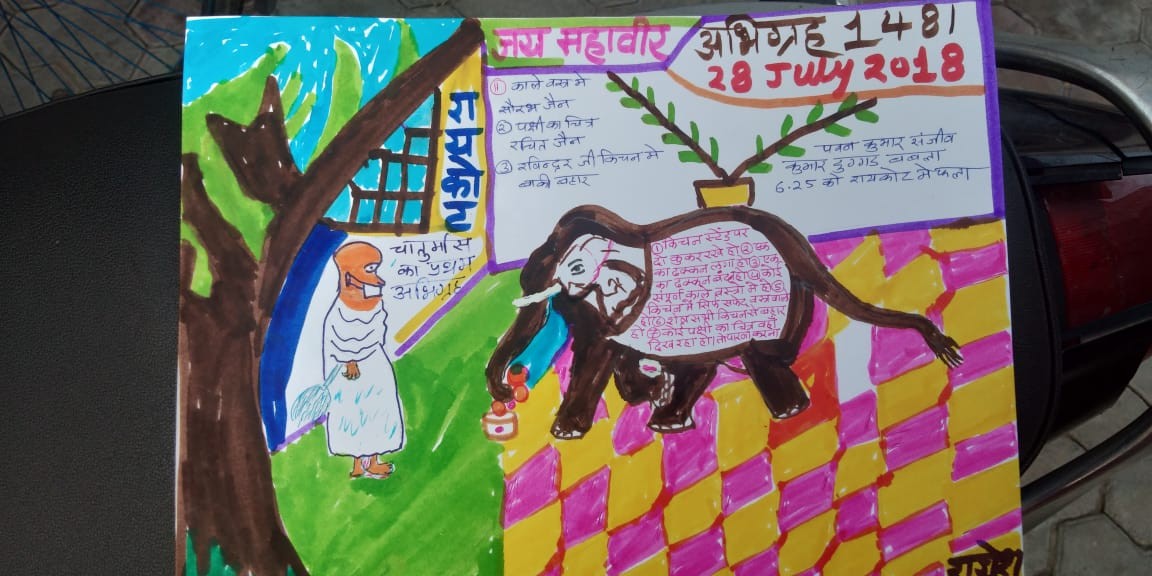 जय महावीर
अभिग्रह 1481
28 July 2018
① काले वस्त्र मे
सौरभ जैन
② पक्षी का चित्र
रचित जैन
③ रविन्दर जी किचन मे
बाकी बहार
पवन कुमार संजीव
कुमार दुग्गड बबला
6.25 को रायकोट मे फला
रायकोट
चातुर्मास
का प्रथम
अभिग्रह
① किचन स्टेंड पर
दो कुकर रखे हो ② एक
का ढक्कन लगा हो ③ एक
का ढक्कन बंद हो ④ कोई
संपूर्ण काले वस्त्रो मे हो ⑤
किचन मे सिर्फ सफेद वस्त्र वाले
हो ⑥ शेष सभी किचन से बहार
हो ⑦ कोई पक्षी का चित्र वहाँ
दिख रहा हो। तो पारना करना